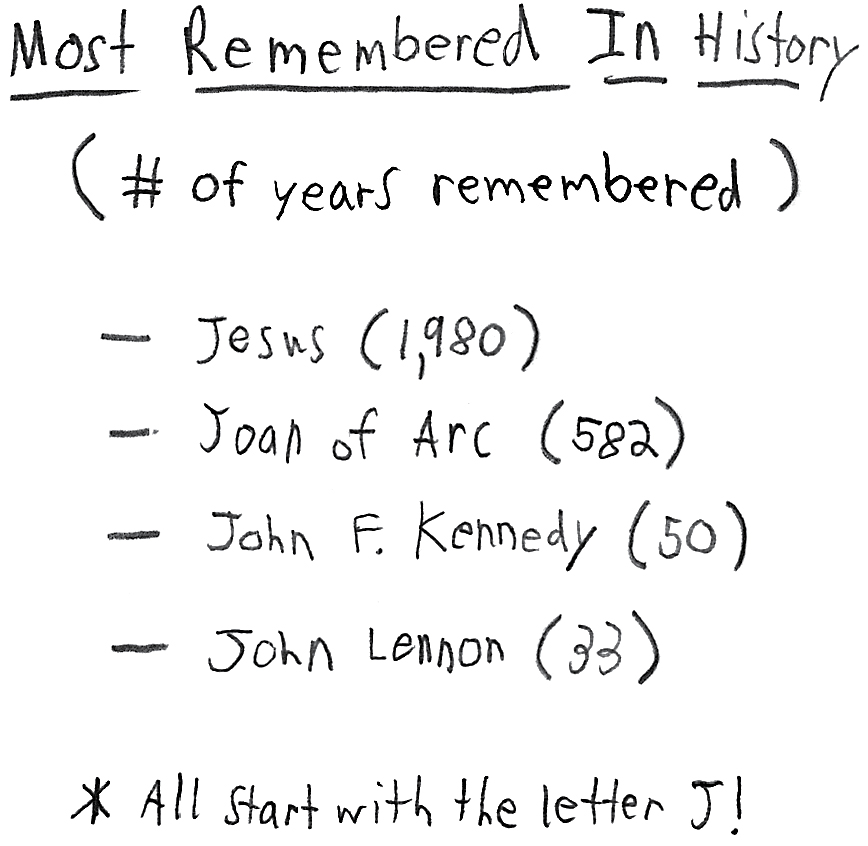 Most Remembered In History
(# of years remembered)
— Jesus (1,980)
— Joan of Arc (582)
— John F. Kennedy (50)
— John Lennon (33)
* All start with the letter J!